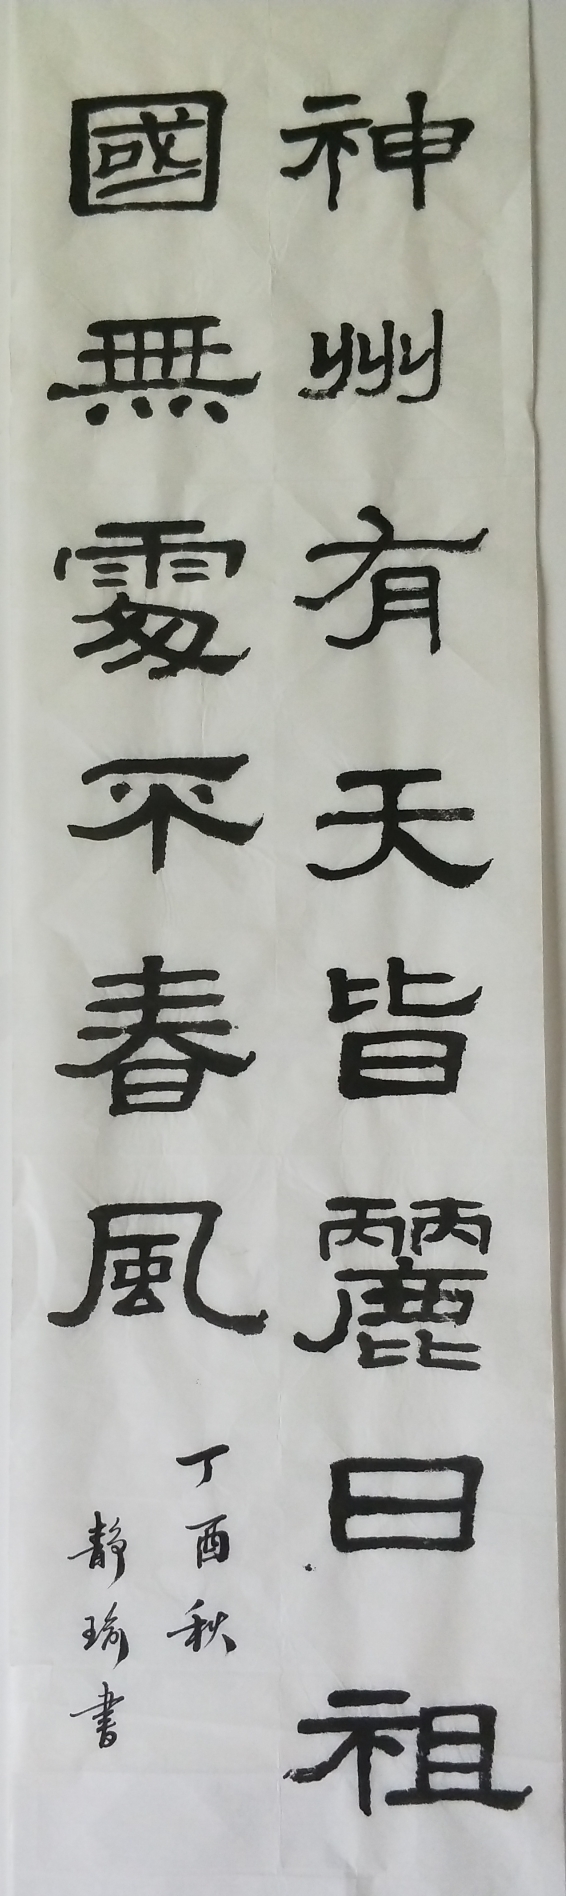 神州有天皆麗日祖
國無處不春風
丁酉秋
靜瑜書